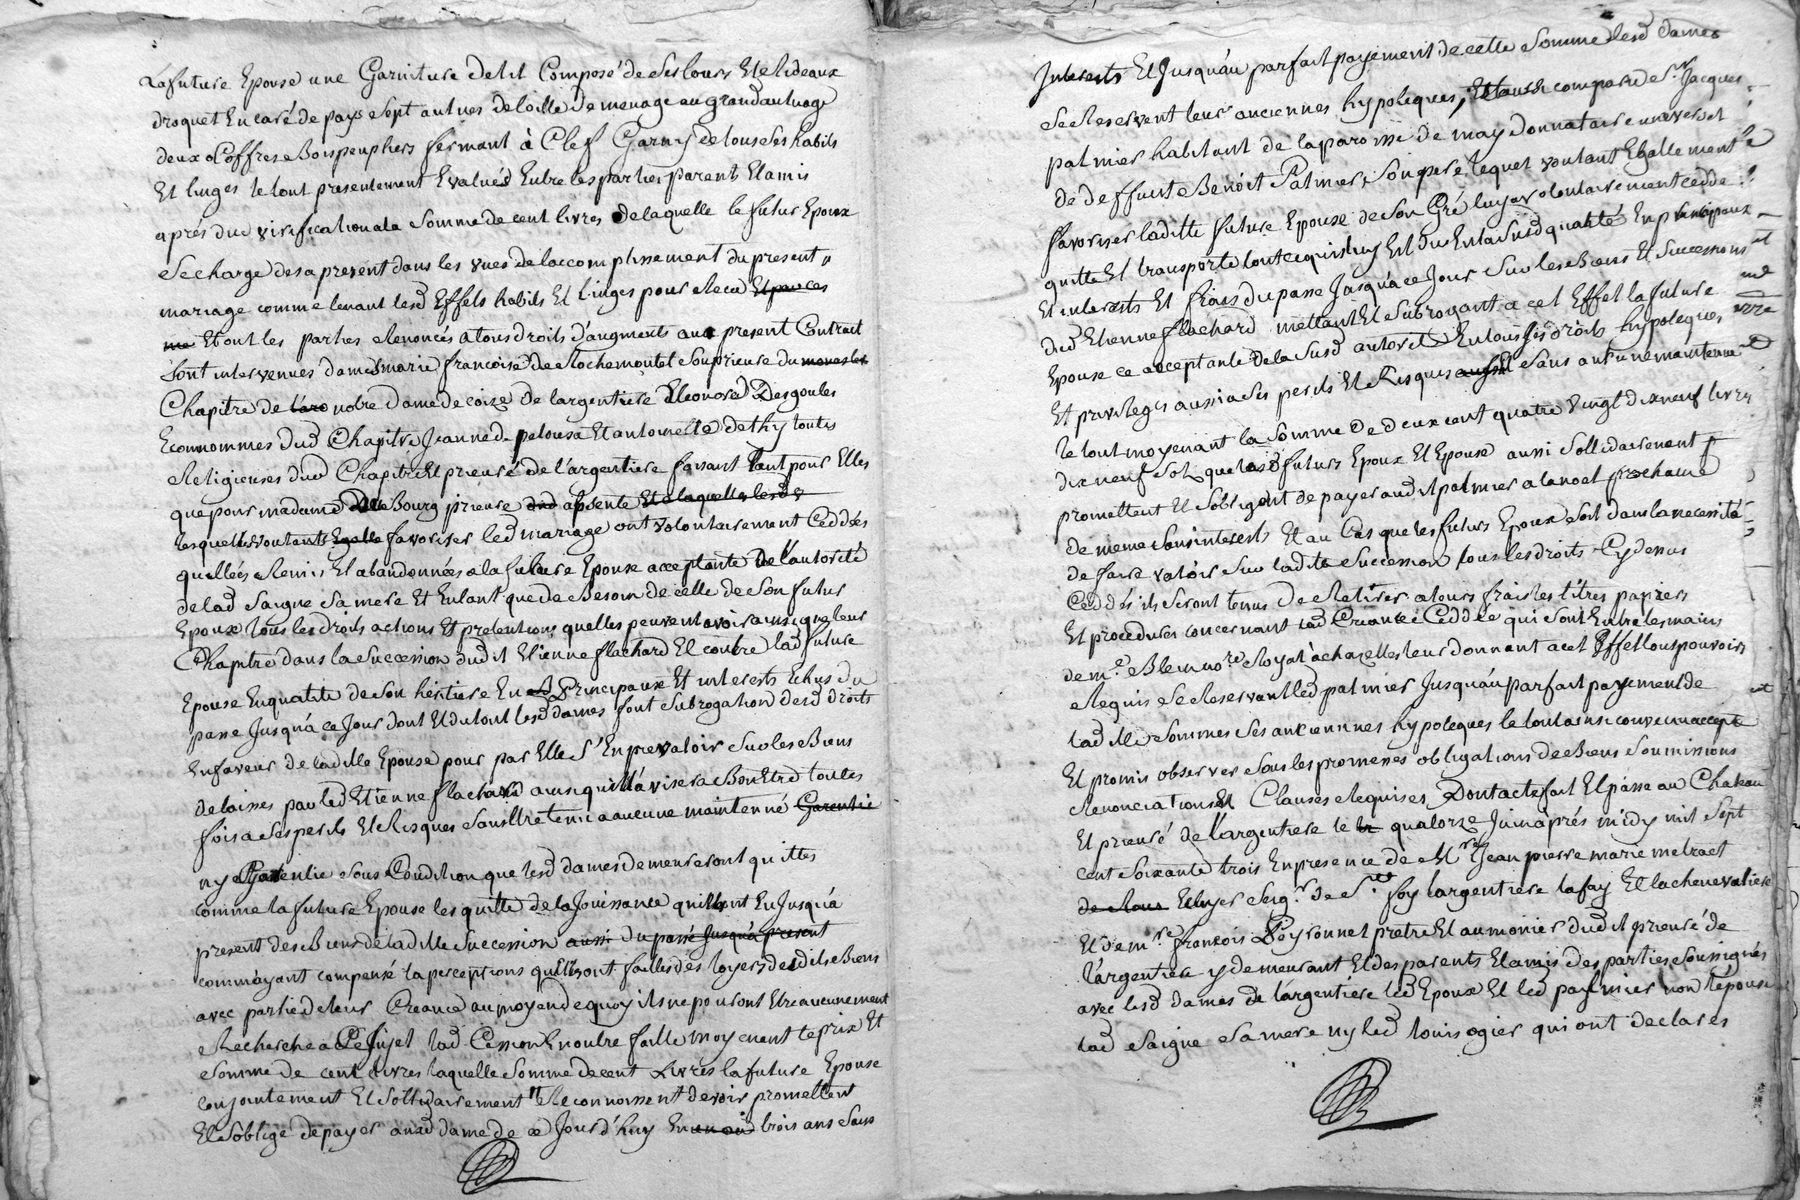 La future Epouse une Garniture de lit Composé de ses tours Et Rideaux
droquet En caré de pays sept aulnes de toille de menage au grand aulnage
deux Coffres Bois peuplier fermant à Clef Garnys de tous ses habits
Et linges le tout presentement Evalués Entre les parties parents Et amis
aprés due verification a la somme de cent livres de laquelle le futur Epoux
se charge des a present dans les vues de l'accomplissement du present
mariage comme tenant lesd Effets habits Et Linges pour Recu Et par ces
Et ont les parties Renoncés a tous droits d'augments au present Contract
sont intervenues dames marie francoise de Rochemontet souprieure du monaster
Chapitre de notre dame de coize de l'argentiere Eleonore Desgoules
Econnommes dud Chapitre Jeanne de pelousa Et antoinette de thy toutes
Religieuses dud Chapitre Et prieuré de l'argentiere faisant tant pour Elles
que pour madame Du Bourg prieure dud absente Et a laquelle lesd
lesquelles voulants Egalle favoriser led mariage ont volontairement Ceddées
quittées Remis Et abandonnées a la future Epouse acceptante de l'autorité
de lad Saigne sa mere Et Entant que de Besoin de celle de son futur
Epoux tous les droits actions Et pretentions quelles peuvent avoir ainsi que leur
Chapitre dans la succession dudit Etienne flachard Et contre lad future
Epouse En qualité de son héritiere En Principaux Et interests Echus du
passe Jusqu'à ce Jour dont Et du tout lesd dames font subrogation desd droits
En faveur de ladille Epouse pour par Elle s'En prevaloir sur les Biens
delaissés par led Etienne flachard ainsi quill'avisera Bon Etre toutes
fois a ses perils Et Risques sans Etre tenu a aucune maintenue Garentie
ny Garentie sous Condition que lesd dames demeureront quittes
comme la future Epouse les quitte de la Jouissance quill'ont Eu Jusqu'à
present des Biens de ladille succession aussi du passé Jusqu'à present
comm'ayant compensé la perceptions quill'ont faittes des loyers desdits Biens
avec partie de leur Creance au moyen de quoy ils ne pouront Etre aucunement
Recherchée a Ce sujet lad Cession En outre faitte moyenant le prix Et
somme de cent livres laquelle somme de cent Livres la future Epouse
conjointement Et sollidairement Reconnoissent devoir promettent
Et s'oblige de payer auxd dame de ce Jour d'huy En un an trois ans sans
Interests Et Jusqu'au parfait payement de cette somme lesd dames
se Reservent leurs anciennes hypoteques, Et aussi comparu Sr. Jacques
palmier habitant de la paroisse de may donnataire universel
de deffunt Benoit Palmier, son pere lequel voulant Egallement
favoriser laditte future Epouse de son Gré luy a volontairement cedde
quitte Et transporté tout ce qui luy Est du En lasusd qualité En principaux
Et interests Et frais du passe Jusqu'à ce Jour sur les Biens Et successions
dud Etienne flachard mettant Et subrogeant a cet Effet la future
Epouse ce acceptante de la susd autorité En tous ses droits hypoteques
Et privileges aussi a ses perils Et Risques sans aucune maintenue
le tout moyenant la somme de deux cent quatre vingt dix neuf livres
dix neuf sols que lesd futurs Epoux Et Epouse aussi sollidairement
promettent Et s'obligent de payer audit palmier a la noel prochaine
de meme sans interests Et au Cas que les futurs Epoux soit dans la necessité
de faire valoir sur laditte succession tous les droits Cy dessus
Ceddés ils seront tenus de Retirer a leurs frais les titres papiers
Et procedures concernant lad Creance Ceddée qui sont Entre les mains
de me. Blein nore. Royal a chazelles leur donnant a cet Effet tous pouvoirs
Requis se Reservant led palmier Jusqu'au parfait payement de
laditte sommes ses anciennes hypoteques le tout ainsi convenu accepté
Et promis observer sous les promesses obligations de Biens soumissions
Renonciations Et Clauses Requises Dont acte fait Et passe au Chateau
Et prieuré de l'argentiere le quatorze Juin aprés midy mil sept
cent soixante trois En presence de Mre Jean pierre marie metract
de Ecuyer Seigr. de Ste foy l'argentiere la fay Et la chenevaliere
Et de mre. francois Peyronnet pretre Et aumonier dudit prieuré de
l'argentiere y demeurant Et des parents Et amis des parties soussignés
avec lesd dames de l'argentiere led Epoux Et led palmier non l'épouse
lad Saigne sa mere ny led Louis ogier qui ont declares